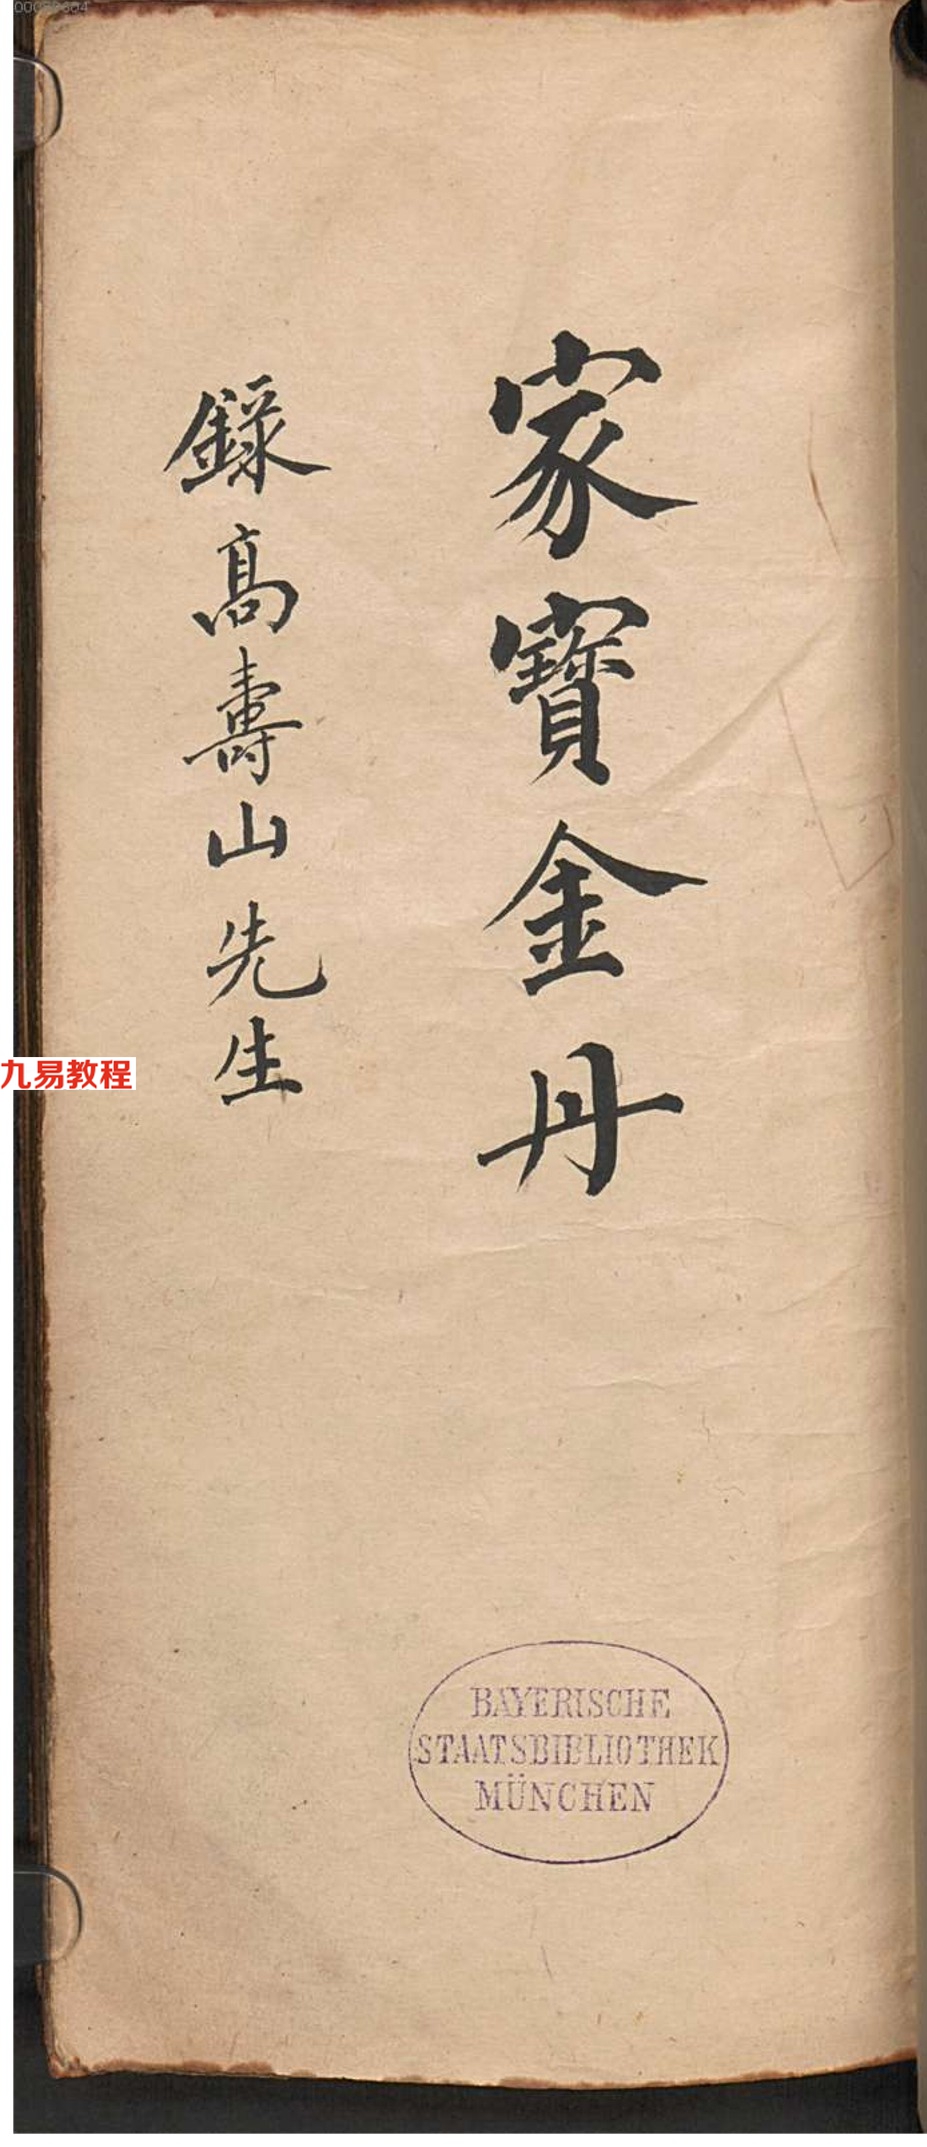 家寶金丹
錄高壽山先生
九易教程
BAYERISCHE
STAATSBIBLIOTHEK
MÜNCHEN